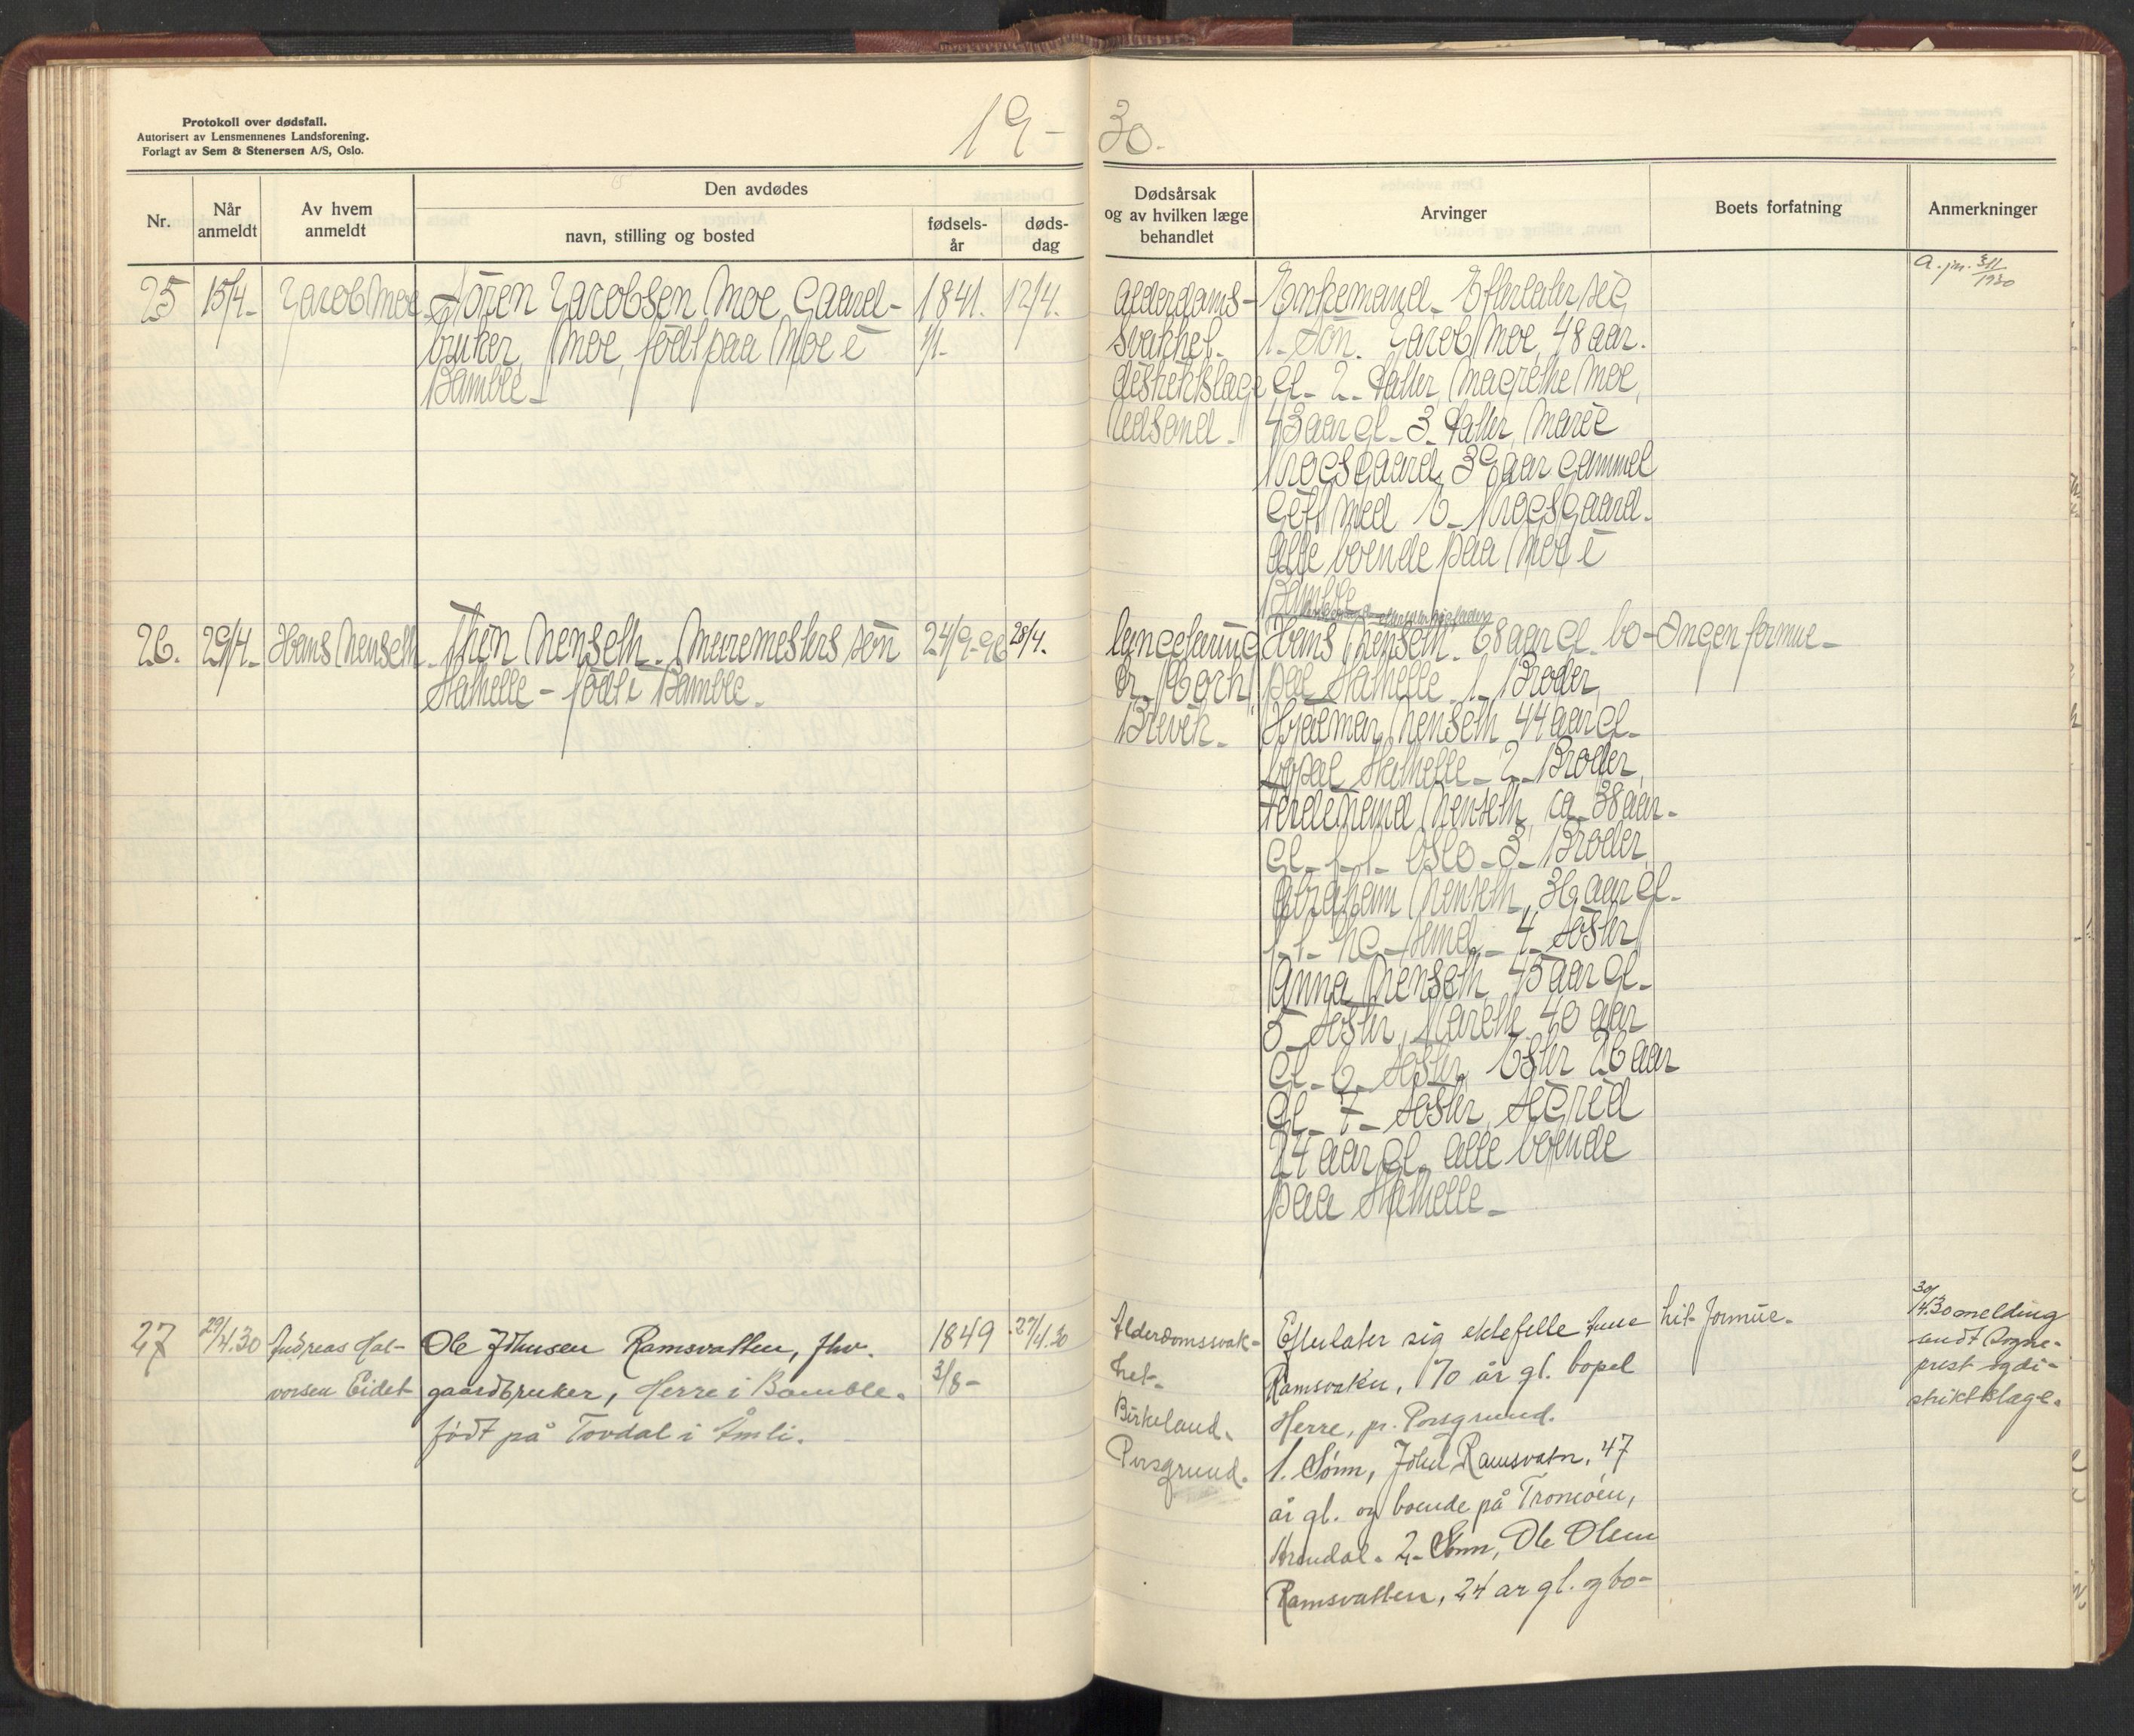 Protokoll over dødsfall.
Autorisert av Lensmennenes Landsforening.
Forlagt av Sem & Stenersen A/S, Oslo.
19-30.
Nr.
Når anmeldt
Av hvem anmeldt
Den avdødes
navn, stilling og bosted
fødsels-år
døds-dag
Dødsårsak og av hvilken læge behandlet
Arvinger
Boets forfatning
Anmerkninger
25
15/4-
Jacob Moe
Sören Jacobsen Moe Gaard-
bruker, Moe, född paa Moe i
Bamble-
1841.
1/1-
12/4.
Alderdoms-
svakhet.
distriktslæge
Enkemand- Efterlater sig
1- Sön. Jacob Moe, 48 aar.
gl- 2- datter, Magrethe Moe,
43 aar gl- 3- datter, Marie
Krogsgaard, 39 aar gammel
gift med E- Krogsgaard.
Alle boende paa Moe i
Bamble
26.
29/4-
Hans Nenseth
Thön Nenseth. Muremesters sön
Stathelle - född i Bamble.
24/9-96
28/4.
Brevik-
Hans Nenseth. 68 aar gl- bo-
pæl Stathelle 1- Broder,
Hjalmar Nenseth 44 aar gl-
bopæl Stathelle- 2- Broder,
Ferdinand Nenseth, ca 38 aar-
gl- f-t- Oslo- 3- Broder,
Abraham Nenseth, 36 aar gl-
4- Söster
Anna Nenseth, 45 aar gl-
5- Söster, Marthe 40 aar
gl- 6- Söster, Ester 26 aar
gl- 7- Söster, Sigrid
24 aar gl- alle boende
paa Stathelle-
Ingen formue-
27
29/4.30
Andreas Hal-
vorsen Eidet
Ole Johnsen Ramsvatten, fhv.
gaardbruker, Herre i Bamble.
født på Tovdal i Åmli.
1849
3/8-
27/4.30
Alderdomssvak-
het-
Birkeland.
Porsgrund.
Efterlater sig ektefelle Tune
Ramsvatn, 70 år gl. bopel
Herre, pr. Porsgrund.
1. Sønn, John Ramsvatn, 47
år gl. og boende på Tromøen,
Arendal. 2- Sønn, Ole Olsen
Ramsvatten, 24 ar gl. og bo-
Lit- formue.
30/4.30 melding
sendt Sogne-
prest og di-
striktslæge.